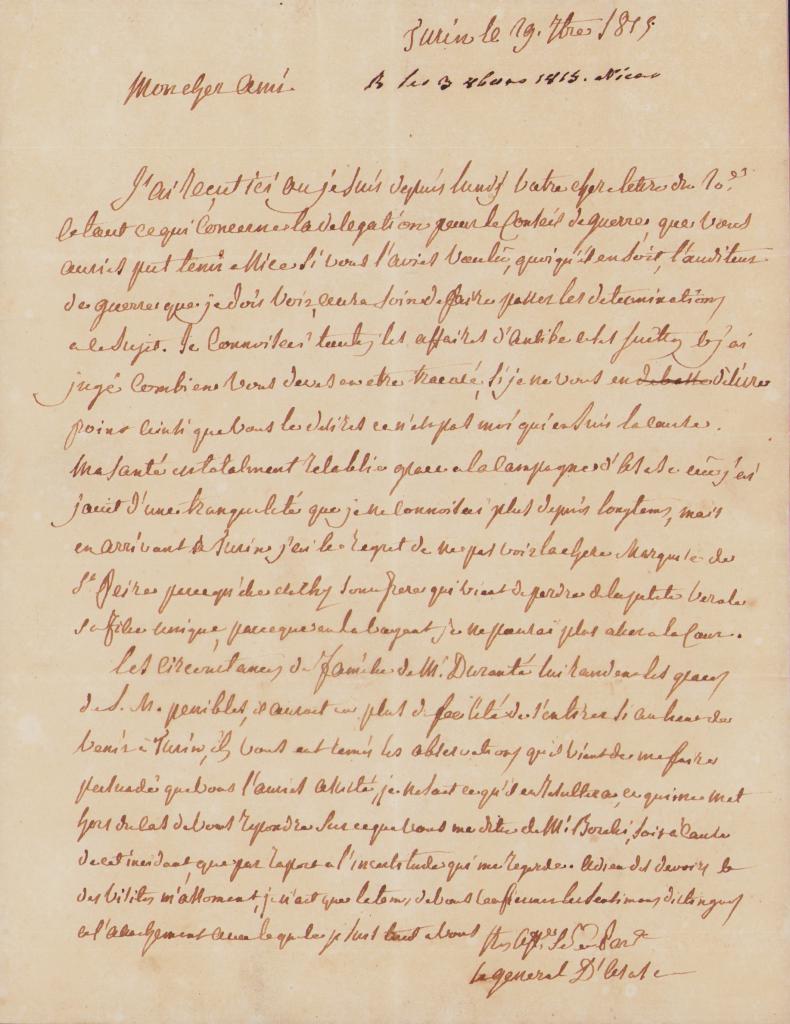 Turin le 19. 7bre 1815
Mon cher ami. R les 3 8bre 1815. Nice
J'ai reçut ici ou je suis depuis lundy votre chere letre du 10.
et tout ce qui concerne la delegation pour le Conseil de guerre, que vous
auriés put tenir a Nice si vous l'aviés voulu, quoiqu'il en soit, l'auditeur
de guerre que je dois voir, aura soin de faire passer les determinations
a ce sujet. Je connoissai toutes les affaires d'Antibe et les suittes et j'ai
jugé combien vous deves en etre tracacé, si je ne vous en delivre
point ainsi que vous le desirés ce n'est pas moi qui en suis la cause.
Ma santé est totalment retablie grace a la campagne d' ou j'ai
jouit d'une tranquilité que je ne connoissai plus depuis longtems, mais
en arrivant a Turin j'ai le regret de ne pas voir la chere Marquise de
St. parcequ'elle est chez son frere qui vient de perdre de la petite verole
sa fille unique, parceque en la voyant je ne pourai plus aller a la Cour.
Les circonstances de famille de Mr. Durante lui randent les graces
de S. M. penibles, il auroit eu plus de facilité de s'en tirer si au lieu de
venir a Turin, il vous eut les observations qu'il vient de me faire
persuadé que vous l'auriés assisté, je ne sait ce qu'il en resultera, ce qui me met
hors du cas de vous repondre sur ce que vous me dite de Mr. soit a cause
de cet incident, que par raport a l'incertitude qui me regarde. Adieu des devoirs et
des visites m'assoment, je n'ait que le tems de vous confirmer les sentimens distingués
et l'atachement avec lequel je suis tout a vous
le general D'